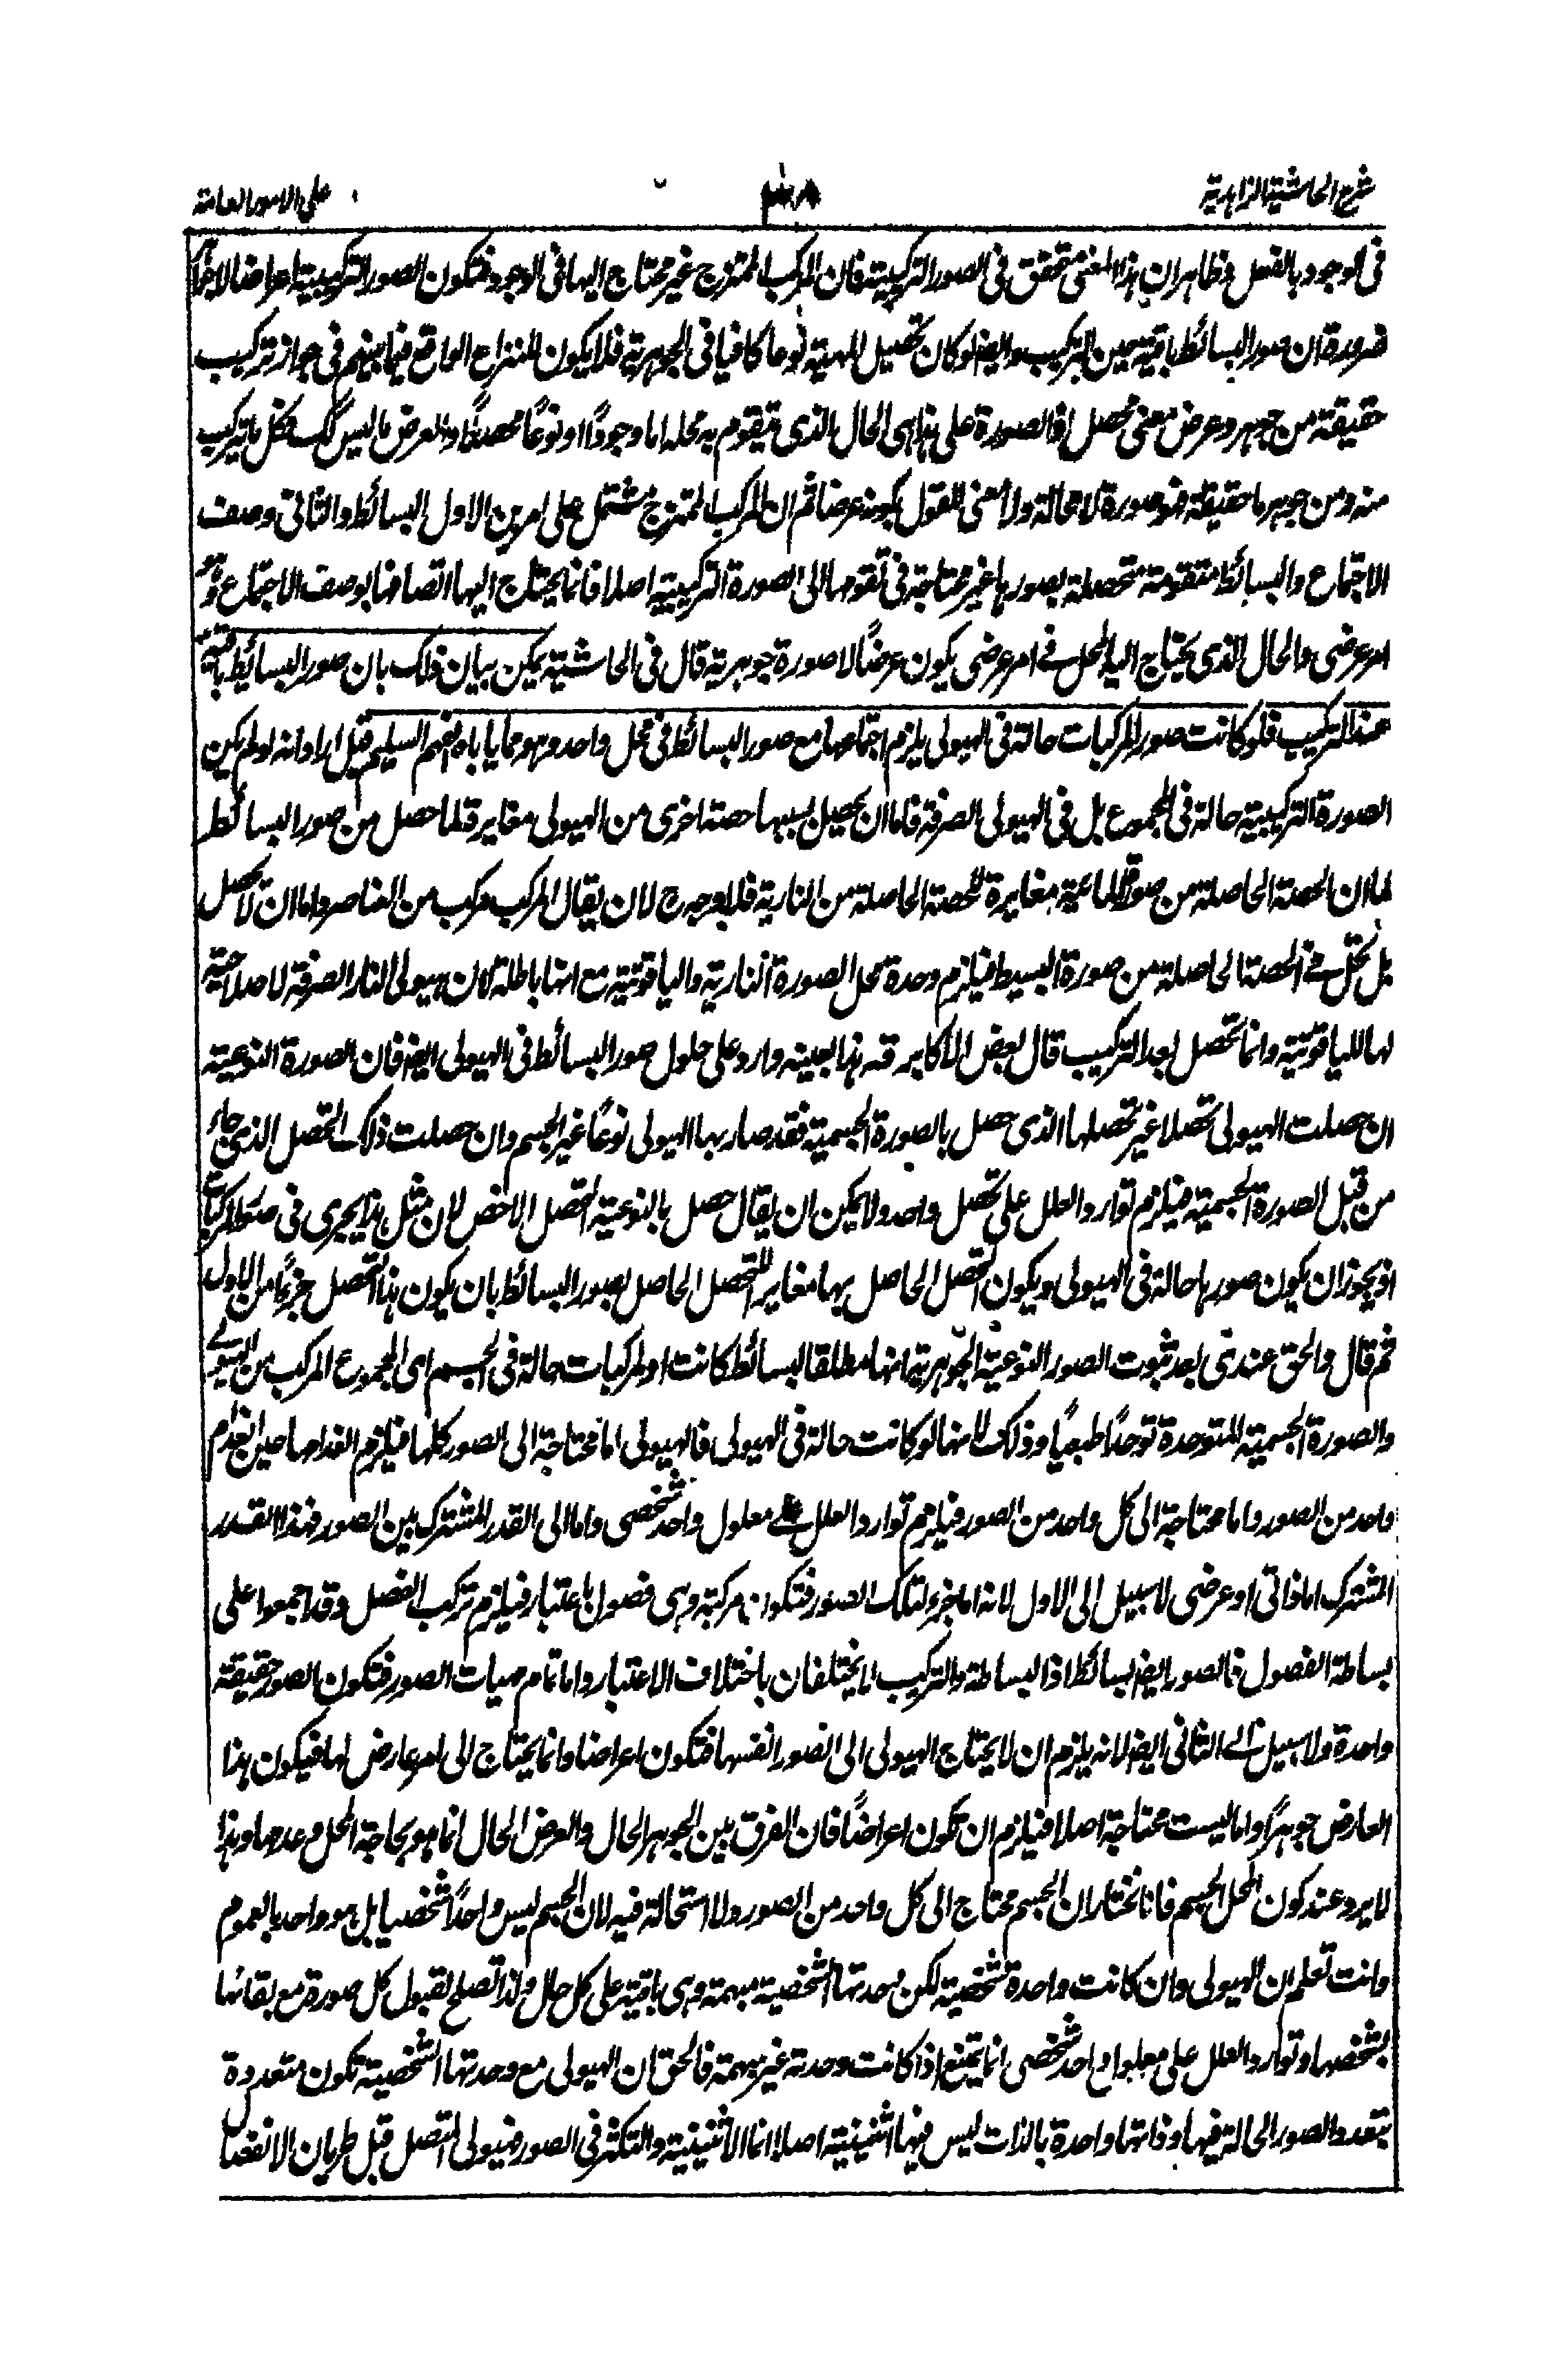 شرح الحاشية الزاهدية
على الامور العامة
فى الوجود بالفعل وظاهر ان هذا المعنى متحقق فى الصور التركيبية فان المركب الممتزج غير محتاج اليها فى الوجود فتكون الصور التركيبية اعراضا لا جواهر
ضرورة ان صور البسائط باقية حين التركيب وايضا لو كان تحصيل المهية نوعا كافيا فى الجوهرية فلا يكون للنزاع الواقع فيما بينهم فى جواز تركيب
حقيقة من جوهر وعرض معنى محصل اذ الصورة على هذا هى الحال الذى يتقوم به محله اما وجودًا او نوعًا محصلًا والعرض ما ليس كك فكل ما يتركب
منه ومن جوهر ما حقيقة فهو صورة لا محالة ولا معنى للقول بكونه عرضا ثم ان المركب الممتزج مشتمل على امرين الاول البسائط والثانى وصف
الاجتماع والبسائط متقومة متحصلة بصورها غير محتاجة فى تقومها الى الصورة التركيبية اصلا فانما يحتاج اليها اتصافها بوصف الاجتماع وهو
امر عرضى والحال الذى يحتاج اليه المحل فى امر عرضى يكون عرضًا لا صورة جوهرية قال فى الحاشية يمكن بيان ذلك بان صور البسائط باقية
عند التركيب فلو كانت صور المركبات حالة فى الهيولى يلزم اجتماعها مع صور البسائط فى محل واحد وهو مما ياباه الفهم السليم قيل ايراد انه لو لم يكن
الصورة التركيبية حالة فى المجموع بل فى الهيولى الصرفة فاما ان يحصل بسببها حصة اخرى من الهيولى مغايرة لما حصل من صور البسائط
كما ان الحصة الحاصلة من صورة المائية مغايرة للحصة الحاصلة من النارية فلا وجه ح لان يقال المركب مركب من العناصر واما ان لا يحصل
بل تحل فى الحصة الحاصلة من صورة البسيط فيلزم وحدة محل الصورة النارية والياقوتية مع انها باطلة لان هيولى النار الصرفة لا صلاحية
لها للياقوتية وانما تحصل بعد التركيب قال بعض الاكابر قه هذا بعينه وارد على حلول صور البسائط فى الهيولى ايضا فان الصورة النوعية
ان حصلت الهيولى تحصلا غير تحصلها الذى حصل بالصورة الجسمية فقد صار بها الهيولى نوعًا غير الجسم وان حصلت ذلك التحصل الذى جاء
من قبل الصورة الجسمية فيلزم توارد العلل على تحصل واحد ولا يمكن ان يقال حصل بالنوعية التحصل الاخص لان مثل هذا يجرى فى صور المركبات
اذ يجوز ان يكون صورها حالة فى الهيولى ويكون التحصل الحاصل بها مغاير التحصل الحاصل بصور البسائط بان يكون هذا التحصل جزءًا من الاول
ثم قال والحق عندى بعد ثبوت الصور النوعية الجوهرية انها مطلقا لبسائط كانت او لمركبات حالة فى الجسم اى المجموع المركب من الهيولى
والصورة الجسمية المتوحدة توحدًا طبعيًا وذلك لانها لو كانت حالة فى الهيولى فالهيولى اما محتاجة الى الصور كلها فيلزم انعدامها حين انعدام
واحد من الصور واما محتاجة الى كل واحد من الصور فيلزم توارد العلل على معلول واحد شخصى واما الى القدر المشترك بين الصور فهذا القدر
المشترك اما ذاتى او عرضى لا سبيل الى الاول لانه اما جزء لتلك الصور فتكون مركبة وهى فصول باعتبار فيلزم تركب الفصل وقد اجمعوا على
بساطة الفصول فالصور ايضا بسائط اذ البساطة والتركيب لا يختلفان باختلاف الاعتبار واما تمام مهيات الصور فتكون الصور حقيقة
واحدة ولا سبيل الى الثانى ايضا لانه يلزم ان لا يحتاج الهيولى الى الصور انفسها فتكون اعراضا وانما يحتاج الى امر عارض لها فيكون هذا
العارض جوهرًا واما ليست محتاجة اصلا فيلزم ان تكون اعراضًا فان الفرق بين الجوهر الحال والعرض الحال انما هو بحاجة المحل وعدمها وهذا
لا يرد عند كون المحل الجسم فانا نختار ان الجسم محتاج الى كل واحد من الصور ولا استحالة فيه لان الجسم ليس واحدًا شخصيا بل هو واحد بالعموم
وانت تعلم ان الهيولى وان كانت واحدة شخصية لكن وحدتها الشخصية مبهمة وهى باقية على كل حال ولذا تصلح لقبول كل صورة مع بقائها
بشخصها وتوارد العلل على معلول واحد شخصى انما يمتنع اذا كانت وحدته غير مبهمة فالحق ان الهيولى مع وحدتها الشخصية تكون متعددة
بتعدد الصور الحالة فيها وذاتها واحدة بالذات ليس فيها اثنينية اصلا انما الاثنينية والتكثر فى الصور فهيولى المتصل قبل طريان الانفصال